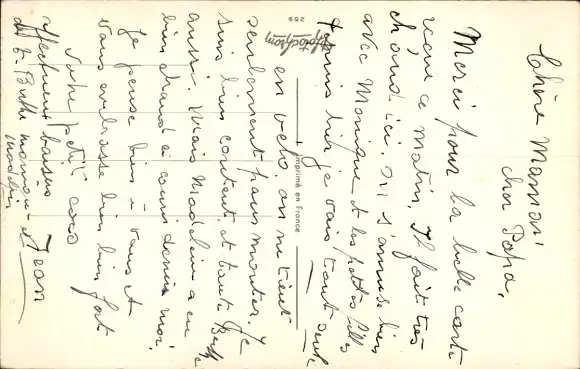 Chère Maman
cher Papa,
Merci pour la belle carte
reçue ce matin. Il fait très
chaud ici. on s'amuse bien
avec Monique et les petites filles
depuis hier je vais tout seul
en vélo, on me tient
seulement pour monter. Je
suis bien content, et tante
aussi. Mais Madeleine a eu
bien chaud à courir derrière moi.
Je pense bien à vous et
vous embrasse bien bien fort
votre petit coco
Jean
affectueux baisers
de T. monique et
madeleine
Photochrom
268
Imprimé en France